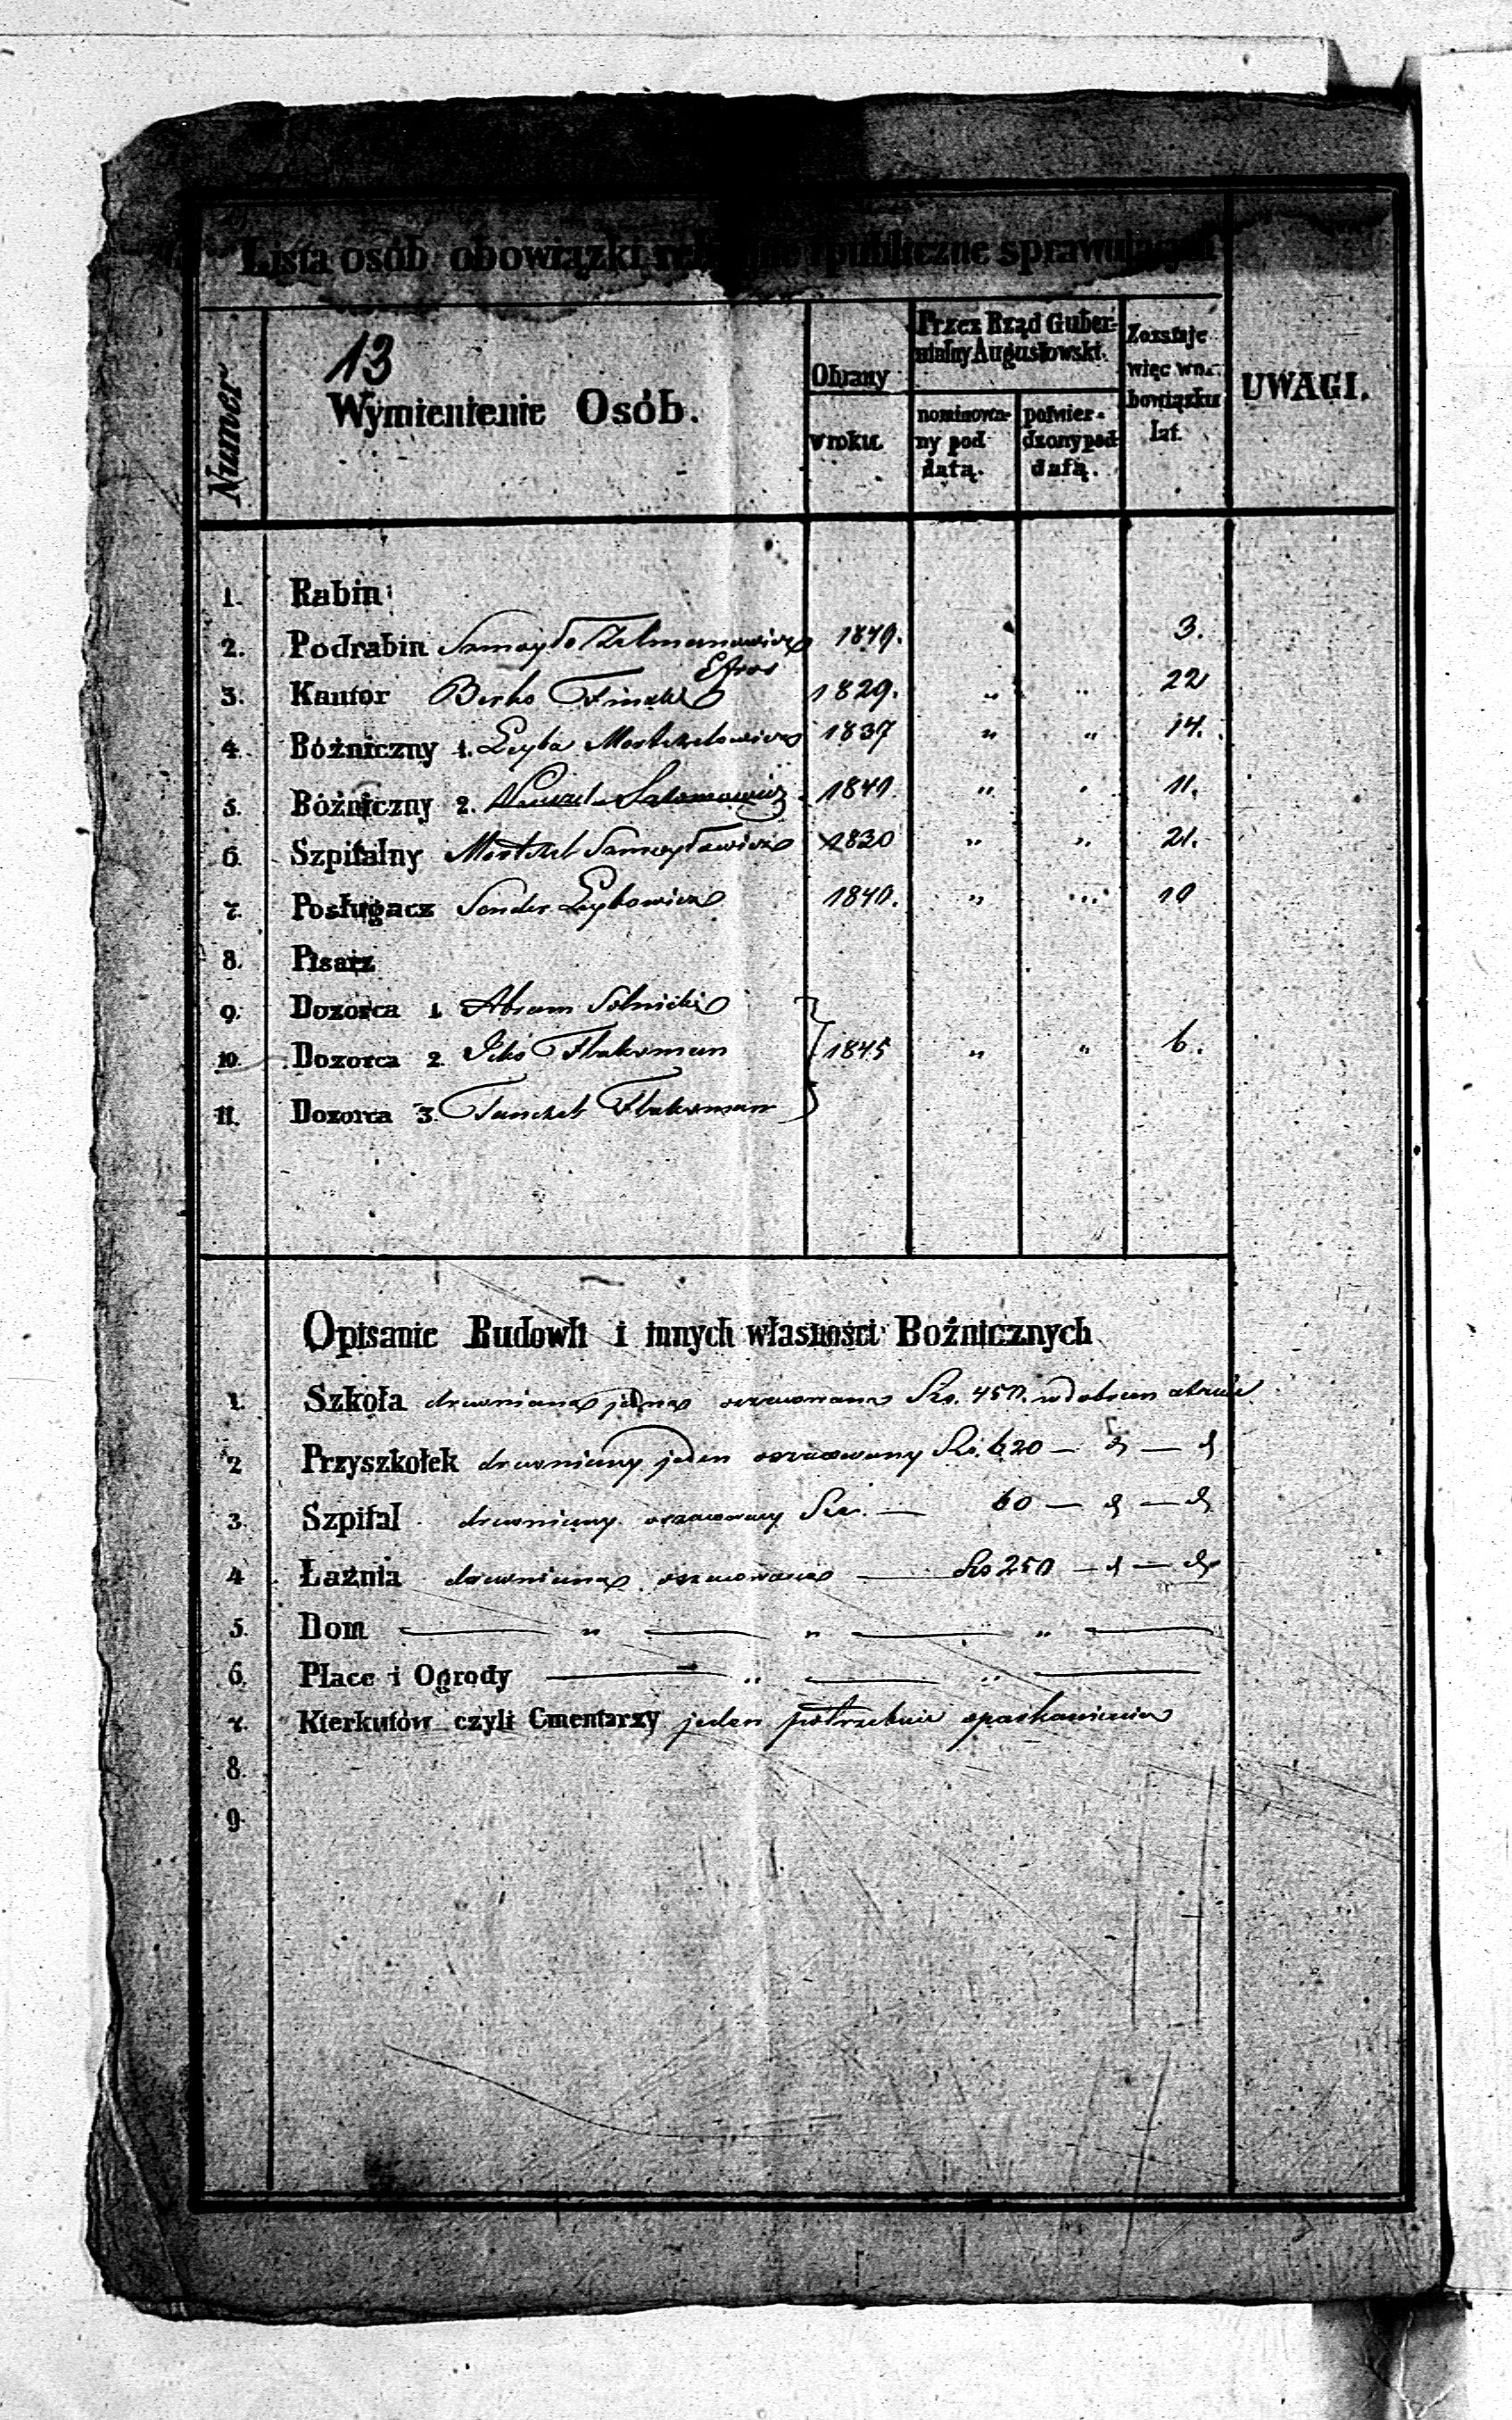 Lista osób obowiązki publiczne sprawujących
Numer
13
Wymienienie Osób.
Obrany
w roku.
Przez Rząd Guber-
nialny Augustowski.
nominowa-
ny pod
datą.
potwier-
dzony pod
datą.
Zostaje
więc w o-
bowiązku
lat.
UWAGI.
1. Rabin
2. Podrabin Samoyło Zelmanowicz 1849. 3.
Efros
3. Kantor Berko 1829. „ „ 22
4. Bóżniczny 1. Leyba Mortchelowicz 1837 „ „ 14.
5. Bóżniczny 2. 1840. „ „ 11.
6. Szpitalny Mortchel Samoyłowicz 1830 „ „ 21.
7. Posługacz Sender Leybowicz 1840. „ „ 10
8. Pisarz
9. Dozorca 1. Abram Solnicki
10. Dozorca 2. Icko Flaksman 1845 „ „ 6.
11. Dozorca 3. Tanchel Flaksman
Opisanie Budowli i innych własności Boźnicznych
1. Szkoła drewniana jedna oszacowana Rs. 450. w dobrym
2 Przyszkołek drewniany jeden oszacowany Rs. 620 — d — d
3. Szpital drewniany oszacowany Rs. — 60 — d — d
4 Łaźnia drewniana oszacowana — Rs 250 — d — d
5. Dom — „ — „ — „ —
6. Place i Ogrody — „ — „ —
7. Kierkutów czyli Cmentarzy jeden potrzebuie oparkanienia
8.
9.